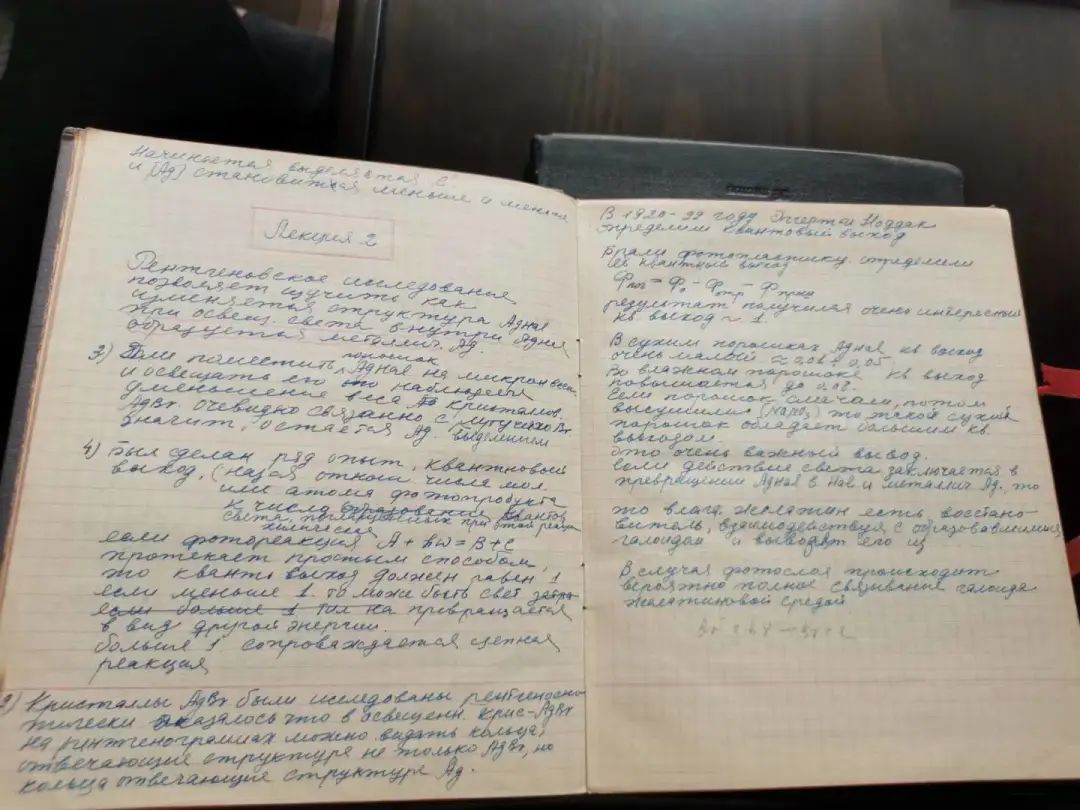 Начинается выделяться
и [Ag] становиться меньше и меньше
Лекция 2
Рентгеновское исследование
позволяет изучить как
изменяется структура AgHal
при освещ. света внутри AgHal
образуется металлич. Ag.
3) Если поместить порошок AgHal на микрон веса
и освещать его наблюдается
уменьшение веса кристаллов.
AgBr, очевидно связанно с
значит, остаётся Ag. выделением
4) Был сделан ряд опыт. квантновый
выход, (назыв отнош числа мол.
или атома фотопродукта
к числу квантов
света, поглащённых при этой реак
если фотореакция A + hω = B + C
протекает простым способом,
то кванть выход должен равен 1
если меньше 1. то може быть свет
если больше 1 превращается
в вид другой энергии.
больше 1 сопровождается цепная
реакция
2) Кристаллы AgBr были исследованы рентгеногра
фически оказалось что в освещенн. крис-AgBr
на рентгенограммах можно видать кольца,
отвечающие структуре не только AgBr, но
кольца отвечающие структуре Ag.
В 1920-22 году Эггерт и Ноддак
определили квантовый выход
Брали фотопластинку. определили
её квантный выход
результат получился очень интересный
кв выход ~ 1.
В сухим порошках AgHal кв выход
очень малый
Во влажном порошоке кв выход
повышается до
Если порошок смачали, потом
высушили (NaNO₂) то такой сухой
порошок обладает большим кв.
выходом.
это очень важный вывод.
если действие света заключается в
превращении AgHal в Hal и металлич Ag, то
то влаг. желатин есть восстано-
витель, взаимодействуя с образовавшимся
галоидом и выводят его из
В случая фотослоя происходит
вероятно полное связывание галоида
желатиновой средой